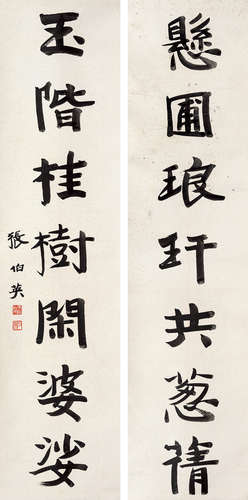 懸圃琅玕共葱蒨
玉階桂樹閑婆娑
張伯英